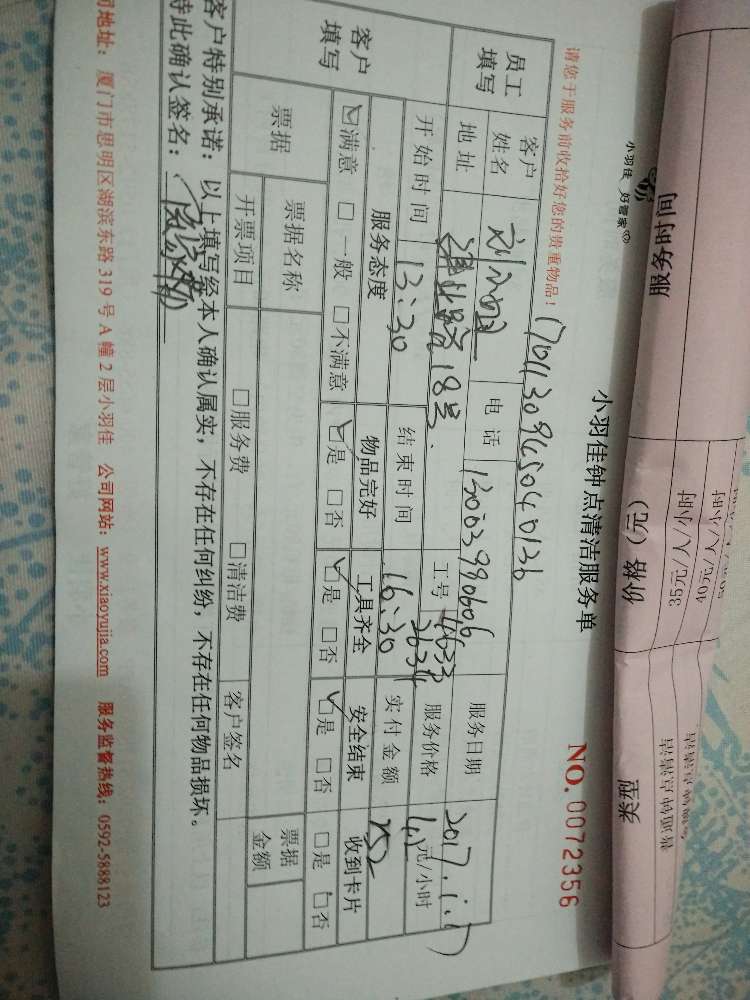 服务时间
价格（元）
类型
35元/人/小时
普通钟点清洁
40元/人/小时
小羽佳 好管家
小羽佳钟点清洁服务单
NO.0072356
请您于服务前收拾好您的贵重物品！
员工填写
客户姓名
电话
服务日期
2017.1.
地址
建业路18号
工号
4633
服务价格
元/小时
开始时间
13:30
结束时间
16:30
实付金额
252
客户填写
服务态度
物品完好
工具齐全
安全结束
收到卡片
☑满意 □一般 □不满意
☑是 □否
☑是 □否
☑是 □否
□是 □否
票据
票据名称
票据金额
开票项目
□服务费 □清洁费
客户签名
客户特别承诺：以上填写经本人确认属实，不存在任何纠纷，不存在任何物品损坏。
特此确认签名：
司地址：厦门市思明区湖滨东路319号A幢2层小羽佳 公司网站：www.xiaoyujia.com 服务监督热线：0592-5888123